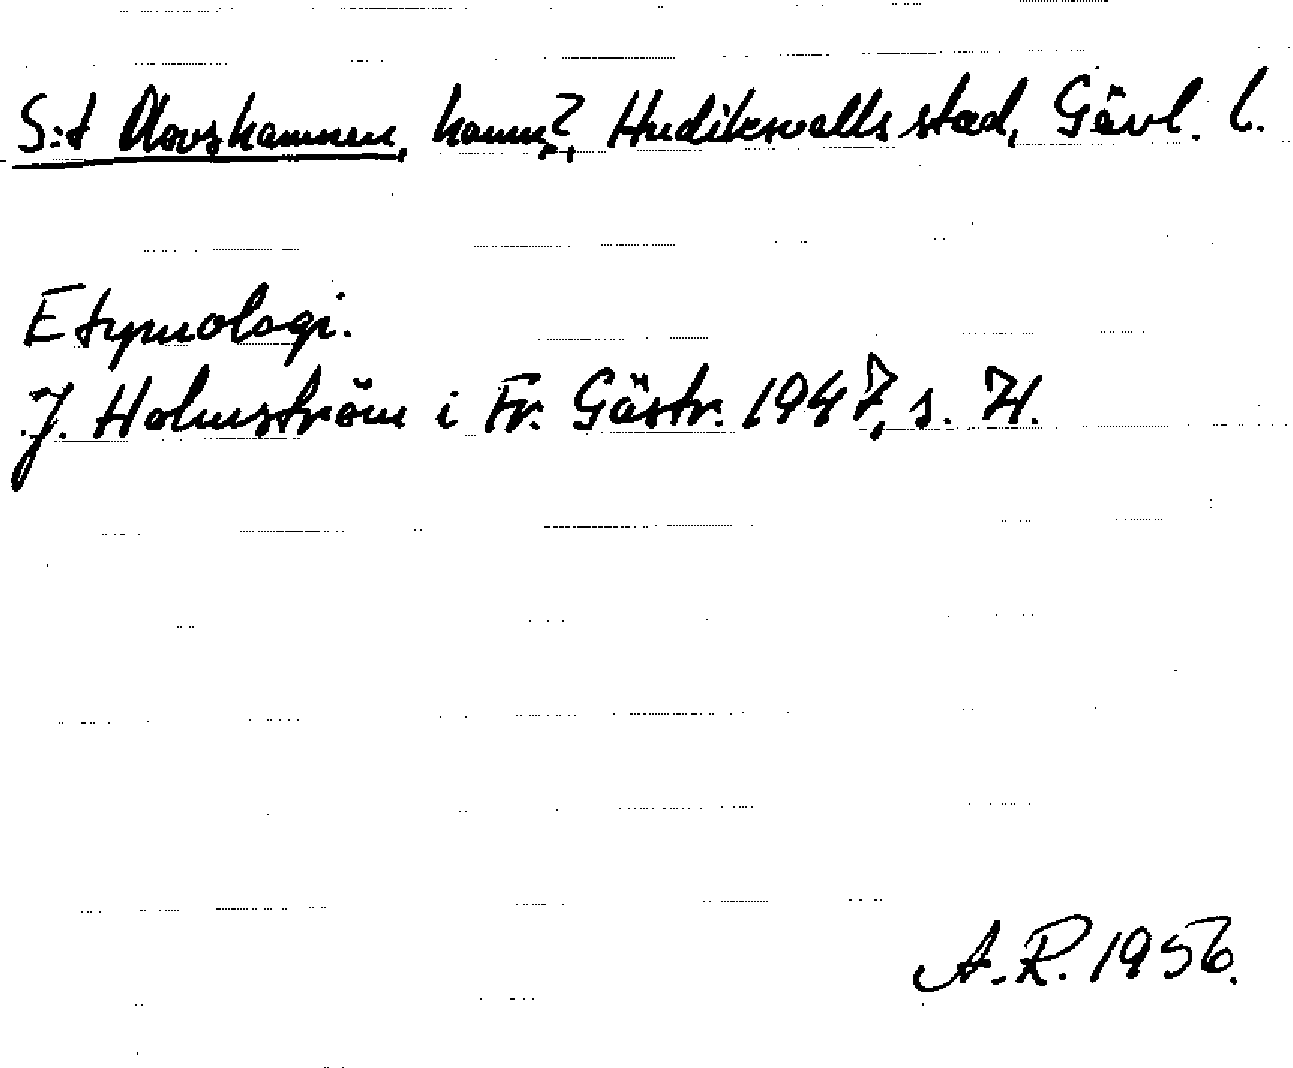 S:t Olovshamnen, hamn?, Hudiksvalls stad, Gävl. l.
Etymologi.
J. Holmström i Fr. Gästr. 1947, s. 71.
A. R. 1956.